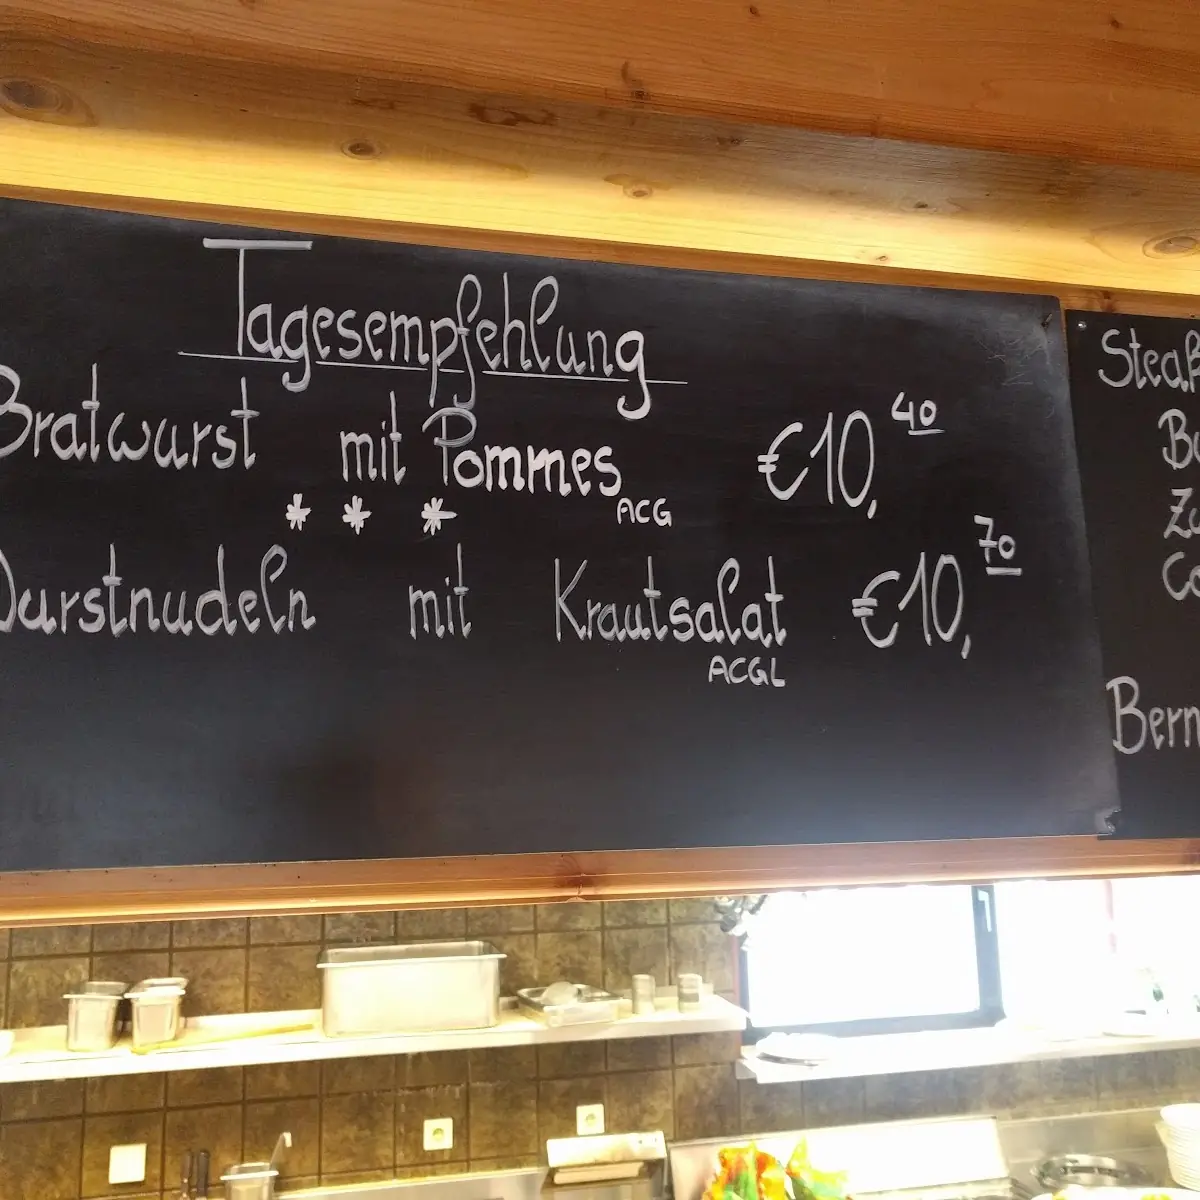 Tagesempfehlung
Bratwurst mit Pommes €10,40
ACG
* * *
Wurstnudeln mit Krautsalat €10,70
ACGL